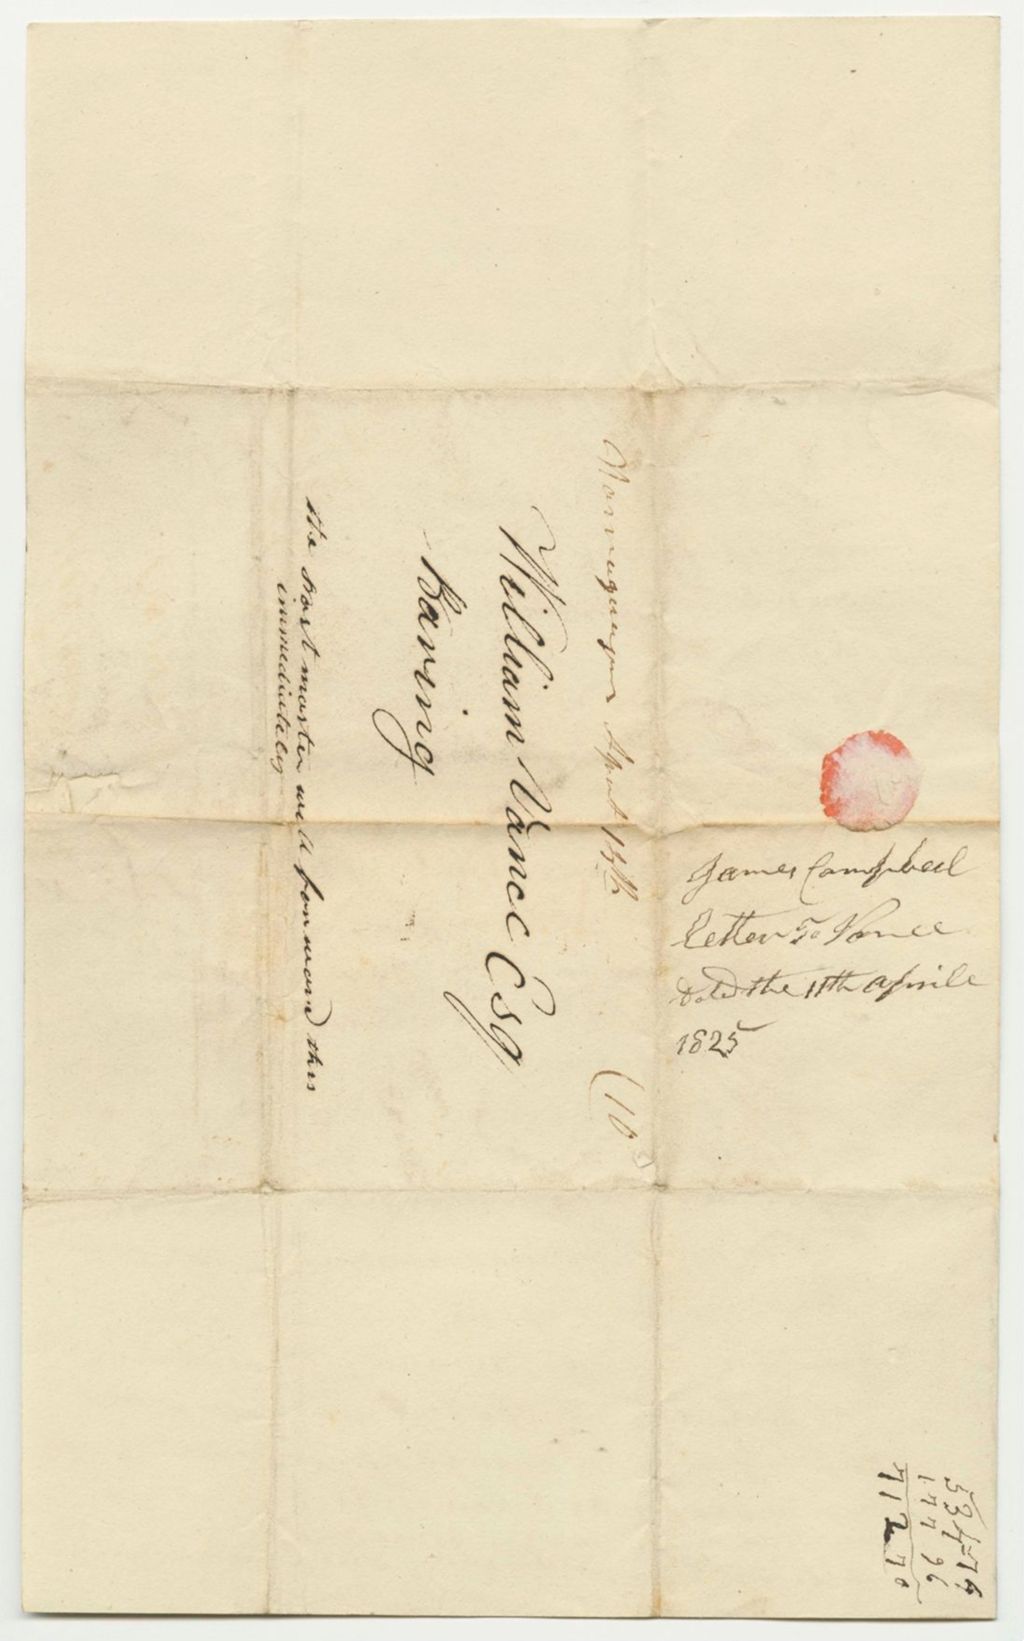 Narraguagus April 13th
(10
William Vance Esq
Baring
the Post master will forward this
immediately
James Campbell
Letter To Vance
Dated the 11th Aprile
1825
534 74
177 96
712 70